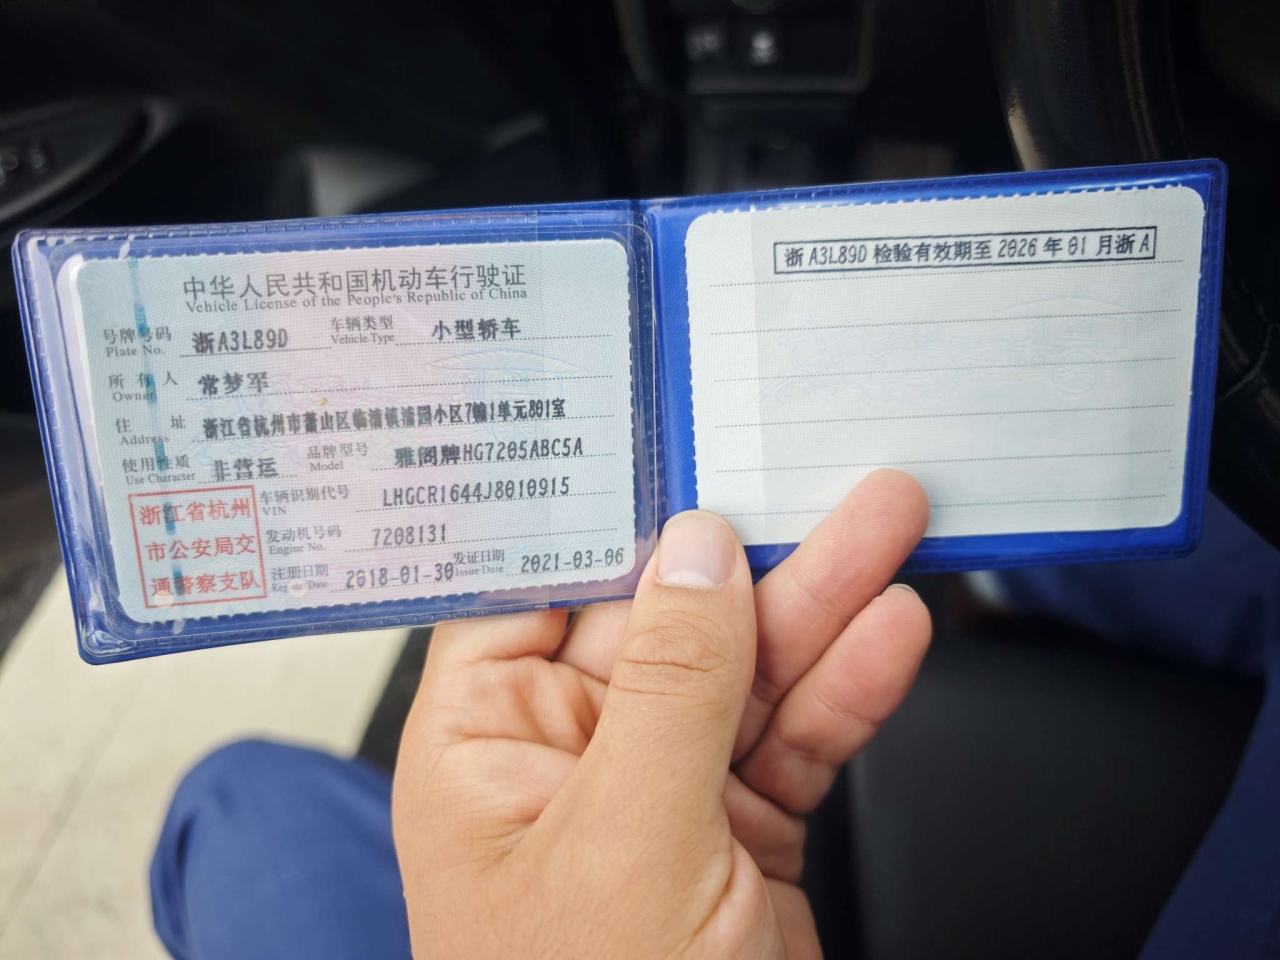 中华人民共和国机动车行驶证
Vehicle License of the People's Republic of China
号牌号码 浙A3L89D 车辆类型 小型轿车
Plate No. Vehicle Type
所有人 常梦军
Owner
住址 浙江省杭州市萧山区临浦镇浦园小区7幢1单元801室
Address
使用性质 非营运 品牌型号 雅阁牌HG7205ABC5A
Use Character Model
浙江省杭州
市公安局交
通警察支队
车辆识别代号 LHGCR1644J8010915
VIN
发动机号码 7208131
Engine No.
注册日期 2018-01-30 发证日期 2021-03-06
Register Date Issue Date
浙A3L89D检验有效期至2026年01月浙A